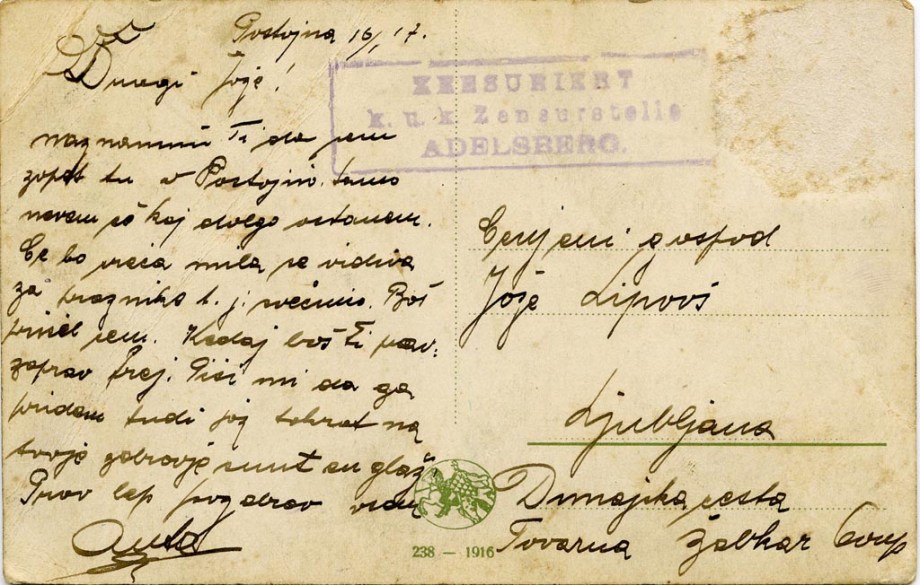 Postojna 16/ 17.
Dragi Jože!
naznanim Ti da sem
zopet tu v Postojni. Samo
nevem če kaj dolgo ostanem.
Če bo sreča mila se vidiva
za praznike t. j. svečnico. Boš
sem. Kedaj boš Ti prav
zaprav frej. Piši mi da ga
pridem tudi jez tekrat na
tvoje zdravje en glaž.
Prav lep pozdrav vsem
ZENSURIERT
k. u. k. Zensurstelle
ADELSBERG.
Cenjeni gospod
Jože Lipovš
Ljubljana
Dunajska cesta
Tovarna Žabkar
238 – 1916